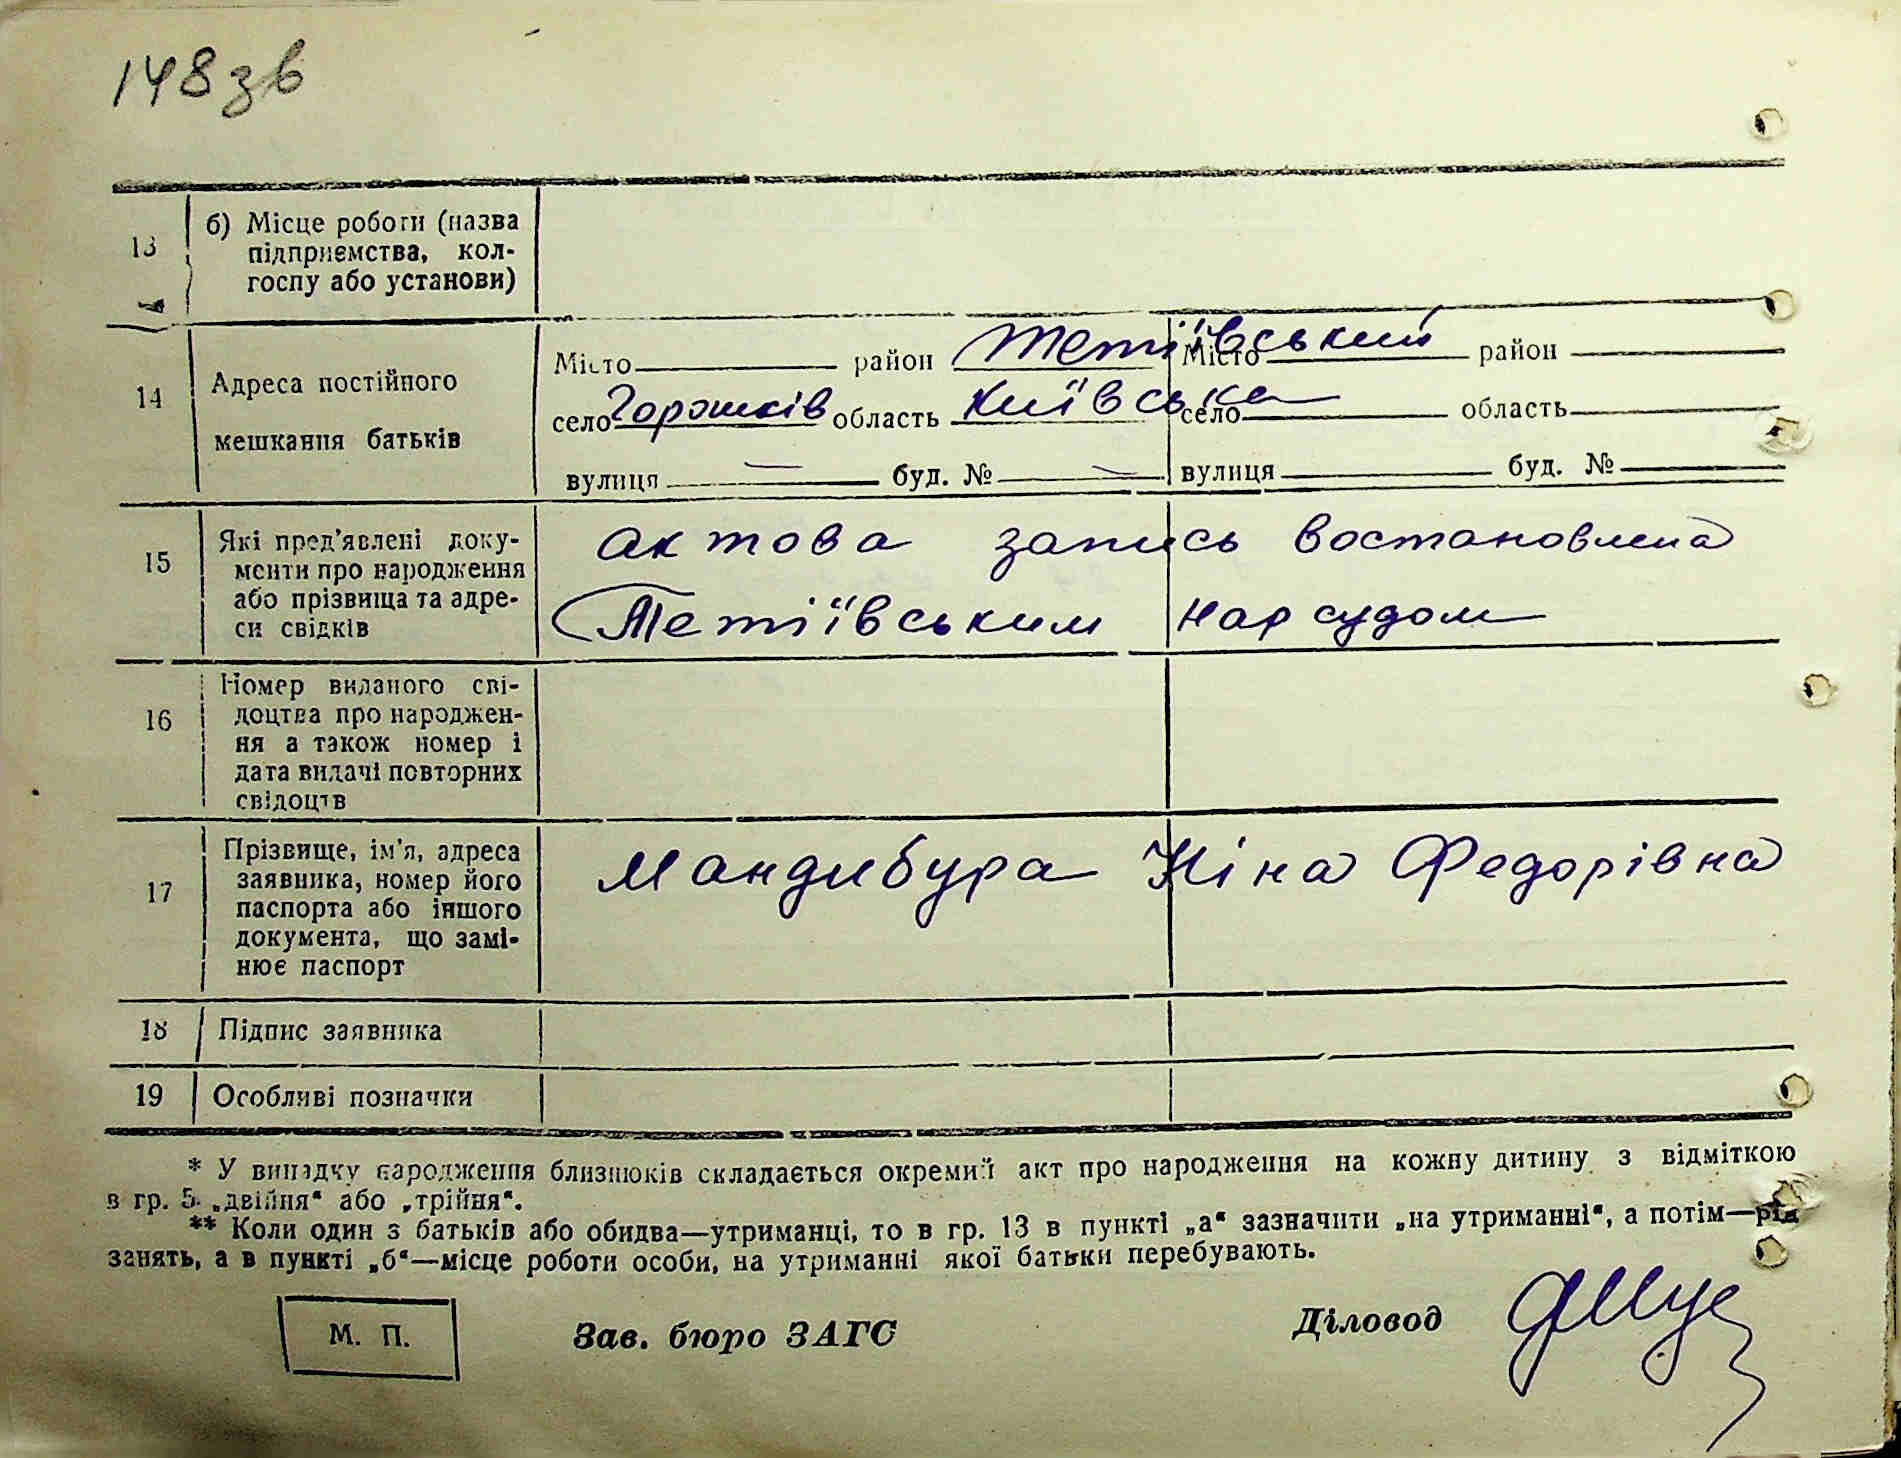 148 зв
13 б) Місце роботи (назва
підприємства, кол-
госпу або установи)
14 Адреса постійного
мешкання батьків
Місто район Тетіївський Місто район
село Горошків область Київська село область
вулиця — буд. № — вулиця буд. №
15 Які пред'явлені доку-
менти про народження
або прізвища та адре-
си свідків
актова запись востановлена
Тетіївським нар судом
16 Номер виданого сві-
доцтва про народжен-
ня а також номер і
дата видачі повторних
свідоцтв
17 Прізвище, ім'я, адреса
заявника, номер його
паспорта або іншого
документа, що замі-
нює паспорт
Мандибура Ніна Федорівна
18 Підпис заявника
19 Особливі позначки
* У випадку народження близнюків складається окремий акт про народження на кожну дитину з відміткою
в гр. 5 „двійня“ або „трійня“.
** Коли один з батьків або обидва—утриманці, то в гр. 13 в пункті „а“ зазначити „на утриманні“, а потім—рід
занять, а в пункті „б“—місце роботи особи, на утриманні якої батьки перебувають.
М. П. Зав. бюро ЗАГС Діловод